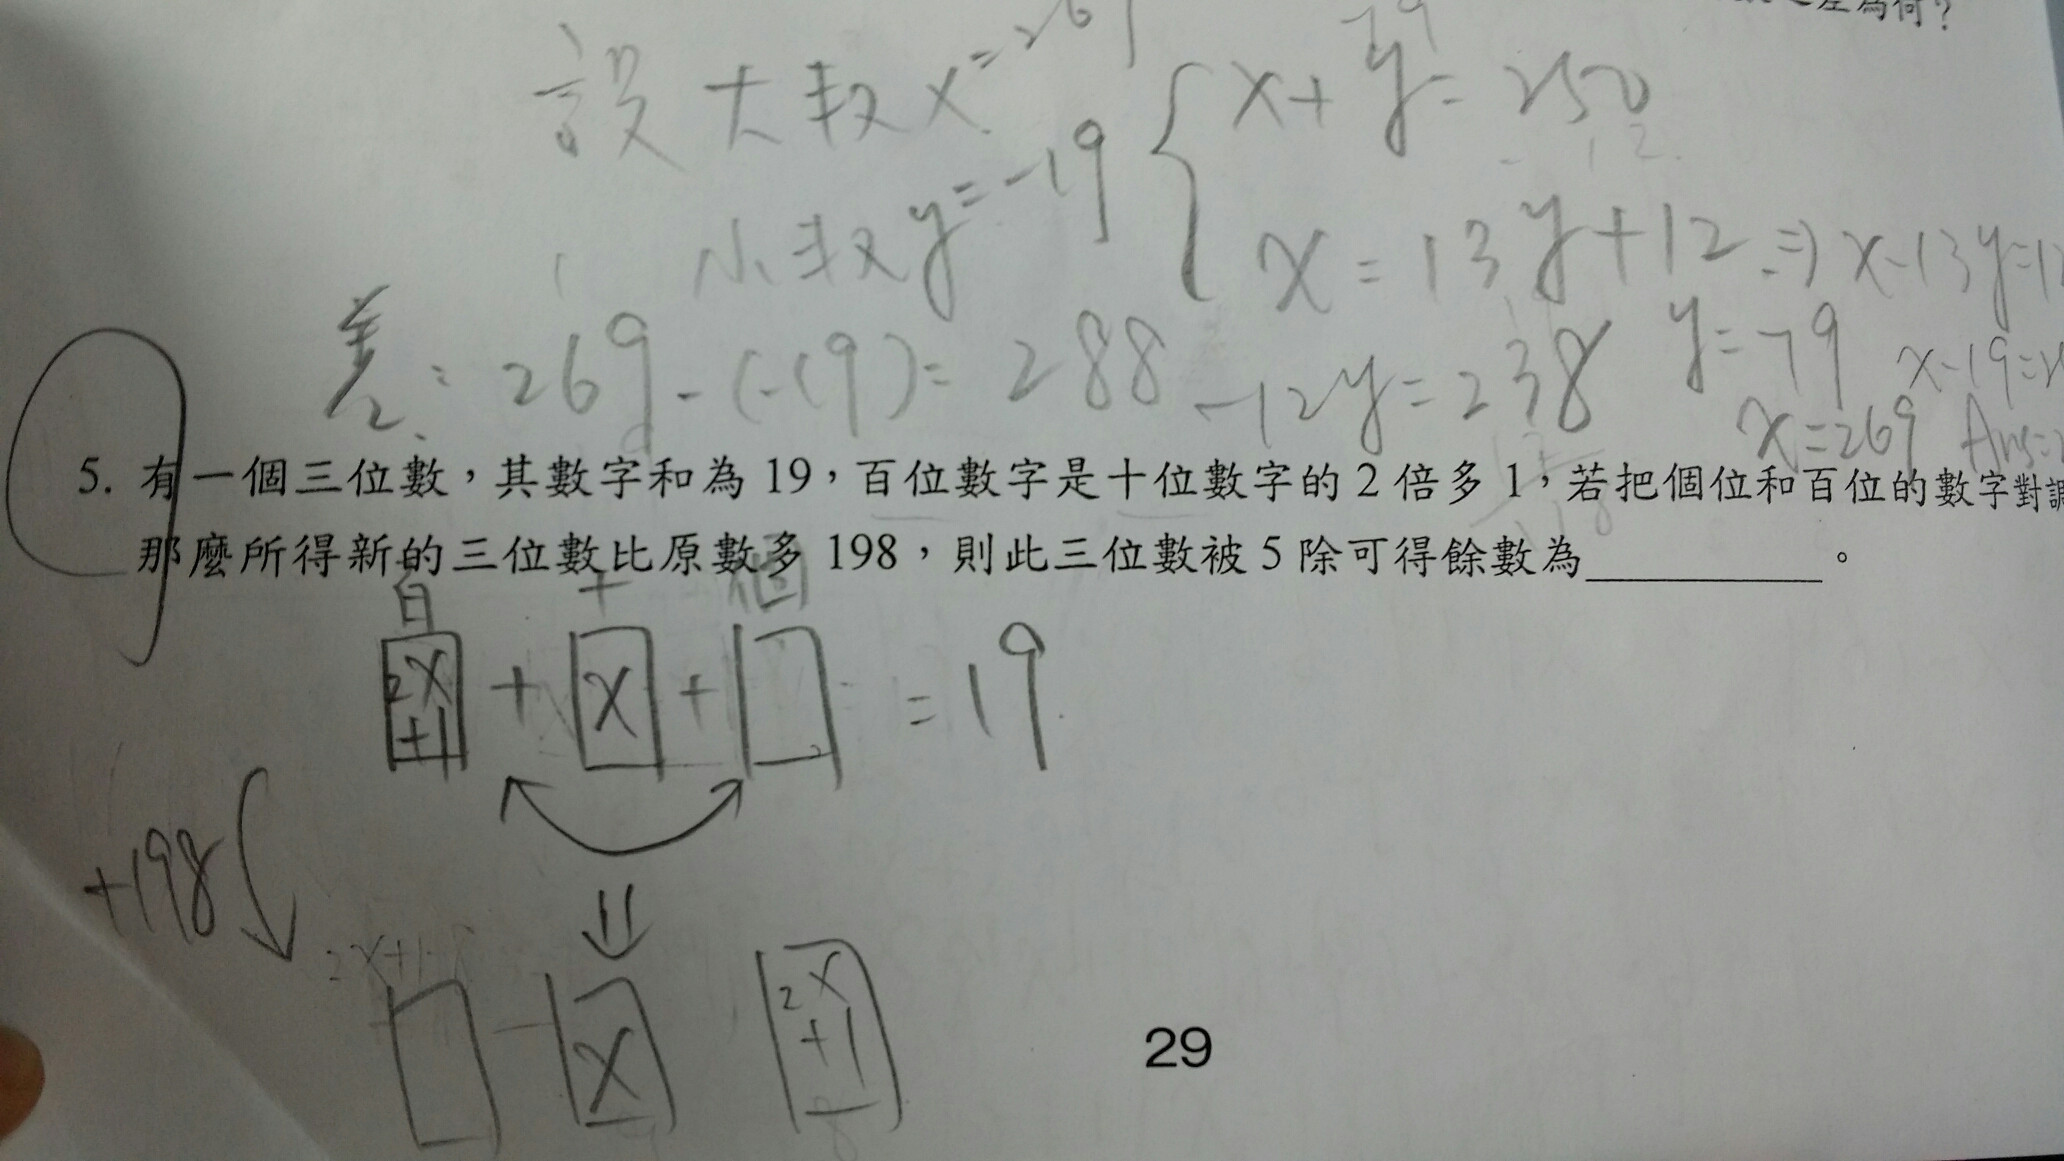 為何?
設大数x=269
x+y=250
小数y=-19
x=13y+12⇒x-13y=12
差:269-(-19)=288
-12y=238
y=-19
x=269
5. 有一個三位數，其數字和為 19，百位數字是十位數字的 2 倍多 1，若把個位和百位的數字對調
那麼所得新的三位數比原數多 198，則此三位數被 5 除可得餘數為__________。
百 十 個
2x+1 + x + = 19
+198
x 2x+1
29